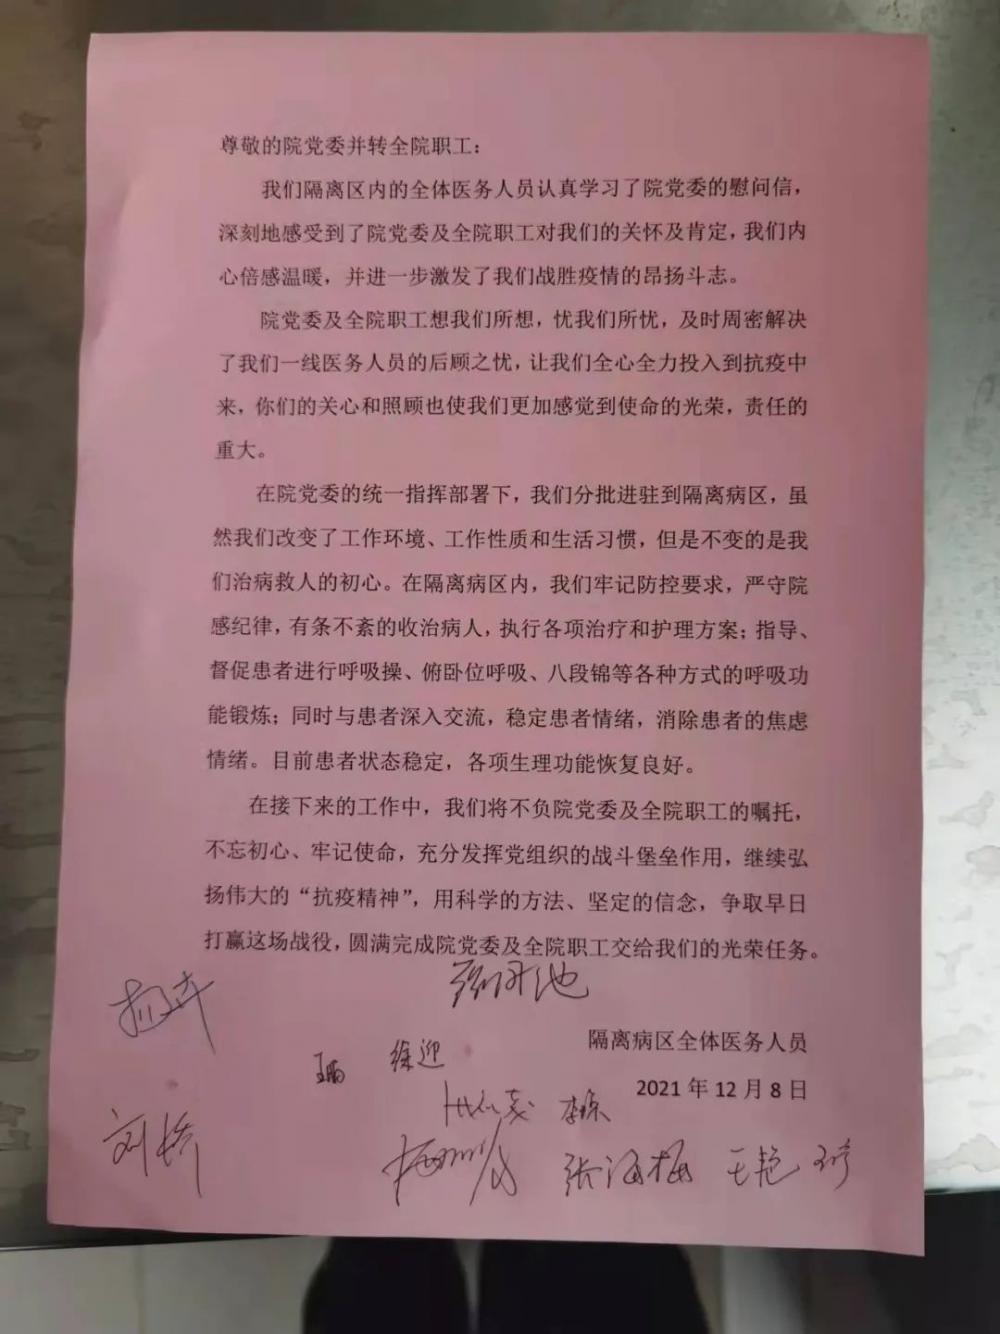 尊敬的院党委并转全院职工：
我们隔离区内的全体医务人员认真学习了院党委的慰问信，
深刻地感受到了院党委及全院职工对我们的关怀及肯定，我们内
心倍感温暖，并进一步激发了我们战胜疫情的昂扬斗志。
院党委及全院职工想我们所想，忧我们所忧，及时周密解决
了我们一线医务人员的后顾之忧，让我们全心全力投入到抗疫中
来，你们的关心和照顾也使我们更加感觉到使命的光荣，责任的
重大。
在院党委的统一指挥部署下，我们分批进驻到隔离病区，虽
然我们改变了工作环境、工作性质和生活习惯，但是不变的是我
们治病救人的初心。在隔离病区内，我们牢记防控要求，严守院
感纪律，有条不紊的收治病人，执行各项治疗和护理方案；指导、
督促患者进行呼吸操、俯卧位呼吸、八段锦等各种方式的呼吸功
能锻炼；同时与患者深入交流，稳定患者情绪，消除患者的焦虑
情绪。目前患者状态稳定，各项生理功能恢复良好。
在接下来的工作中，我们将不负院党委及全院职工的嘱托，
不忘初心、牢记使命，充分发挥党组织的战斗堡垒作用，继续弘
扬伟大的“抗疫精神”，用科学的方法、坚定的信念，争取早日
打赢这场战役，圆满完成院党委及全院职工交给我们的光荣任务。
隔离病区全体医务人员
徐迎
2021 年 12 月 8 日
张海梅